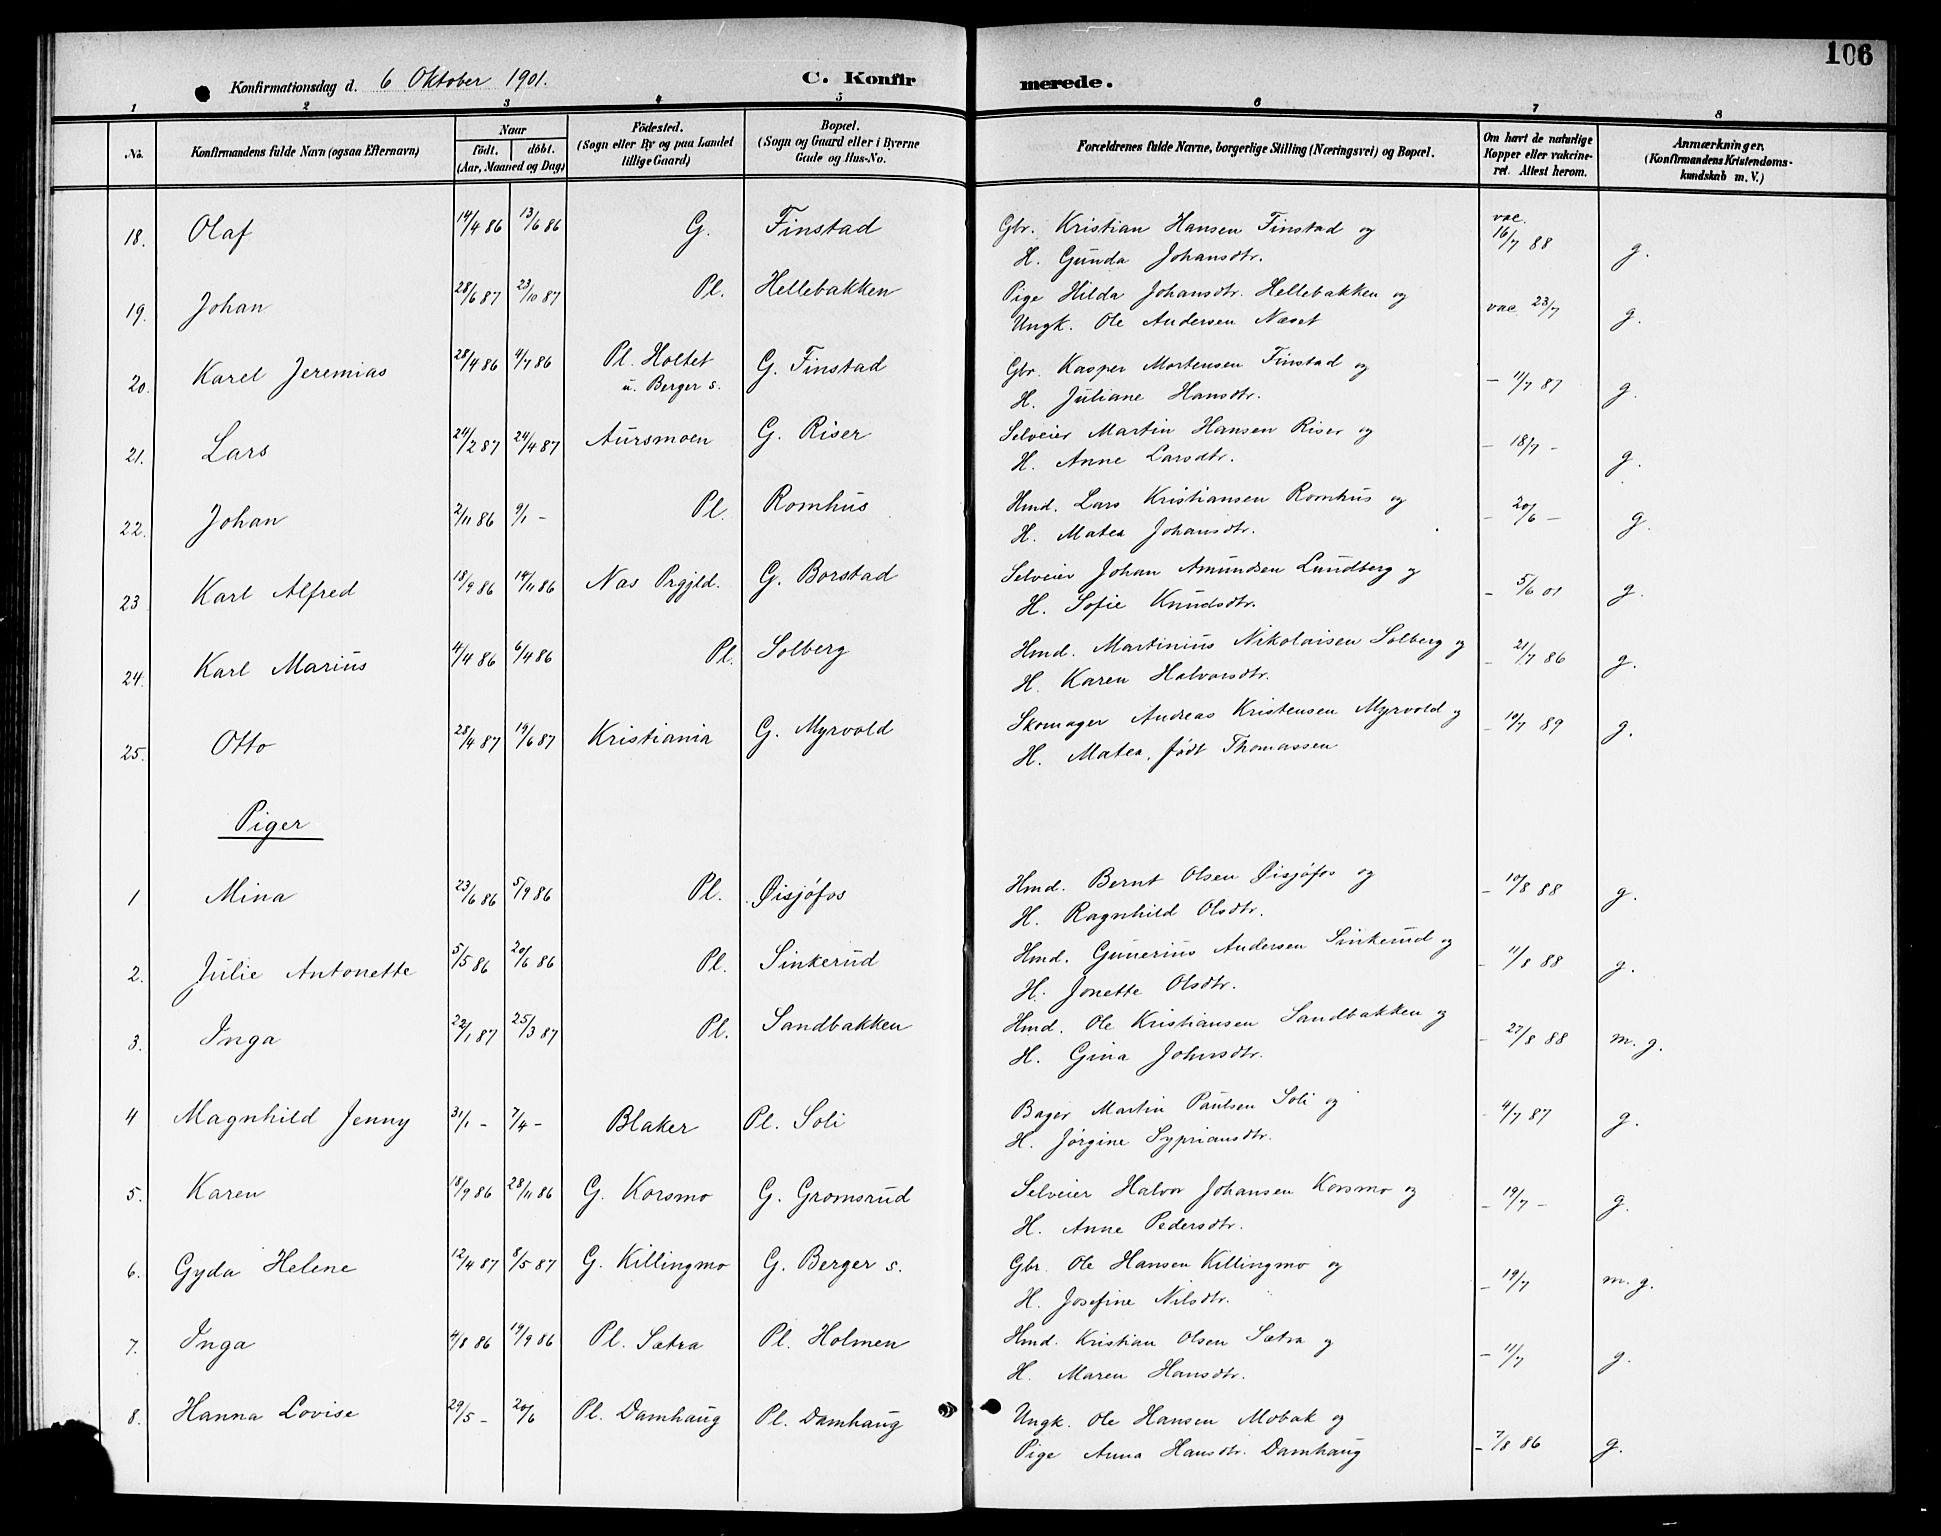 106
Konfirmationsdag d. 6 Oktober 1901. C. Konfirmerede.
1 2 3 4 5 6 7 8
No. Konfirmandens fulde Navn (ogsaa Efternavn) Naar födt. döbt. (Aar, Maaned og Dag) Födested. (Sogn eller By og paa Landet tillige Gaard) Bopæl. (Sogn og Gaard eller i Byerne Gade og Hus-No. Forældrenes fulde Navne, borgerlige Stilling (Næringsvei) og Bopæl. Om havt de naturlige Kopper eller vakcineret. Attest herom. Anmærkninger. (Konfirmandens Kristendomskundskab m. V.)
18. Olaf 14/4 86 13/6 86 G. Finstad Gbr. Kristian Hansen Finstad og vac. 16/7 88 g.
H. Gunda Johansdtr.
19. Johan 28/6 87 23/10 87 Pl. Hellebakken Pige Hilda Johansdtr. Hellebakken og vac 23/7 g.
Ungk. Ole Andersen Næset
20. Karel Jeremias 28/4 86 4/7 86 Pl. Holtet u. Berger s. G. Finstad Gbr. Kasper Mortensen Finstad og – 11/7 87 g.
H. Juliane Hansdtr.
21. Lars 24/2 87 24/4 87 Aursmoen G. Riser Selveier Martin Hansen Riser og – 18/7 – g.
H. Anne Larsdtr.
22. Johan 2/11 86 9/1 – Pl. Romhus Hmd. Lars Kristiansen Romhus og – 20/6 – g.
H. Matea Johansdtr.
23 Karl Alfred 18/9 86 14/11 86 Nas Prgjld. G. Borstad Selveier Johan Amundsen Lundberg og – 5/6 01 g.
H. Sofie Knudsdtr.
24. Karl Marius 4/4 86 6/4 86 Pl. Solberg Hmd. Martinius Nikolaisen Solberg og – 21/7 86 g.
H. Karen Halvorsdtr.
25. Otto 28/4 87 19/6 87 Kristiania G. Myrvold Skomager Andreas Kristensen Myrvold og – 10/7 89 g.
H. Matea, født Thomassen
Piger
1 Mina 23/6 86 5/9 86 Pl. Øisjøfos Hmd. Bernt Olsen Øisjøfos og – 10/8 88 g.
H. Ragnhild Olsdtr.
2. Julie Antonette 5/5 86 20/6 86 Pl. Sinkerud Hmd. Gunerius Andersen Sinkerud og – 11/8 88 g.
H. Jonette Olsdtr.
3. Inga 22/1 87 25/3 87 Pl. Sandbakken Hmd. Ole Kristiansen Sandbakken og – 27/8 88 m. g.
H. Gina Johnsdtr.
4 Magnhild Jenny 31/1 – 7/4 – Blaker Pl. Soli Bager Martin Paulsen Soli og – 4/7 87 g.
H. Jørgine Sypriansdtr.
5. Karen 18/9 86 28/11 86 G. Korsmo G. Gromsrud Selveier Halvor Johansen Korsmo og – 19/7 – g.
H. Anne Pedersdtr.
6. Gyda Helene 12/4 87 8/5 87 G. Killingmo G. Berger s. Gbr. Ole Hansen Killingmo og – 19/7 m. g.
H. Josefine Nilsdtr.
7. Inga 4/8 86 19/9 86 Pl. Sætra Pl. Holmen Hmd. Kristian Olsen Sætra og – 11/7 g.
H. Maren Hansdtr.
8. Hanna Lovise 29/5 – 20/6 Pl. Damhaug Pl. Damhaug Ungk. Ole Hansen Mobak og – 7/8 86 g.
Pige Anna Hansdtr. Damhaug